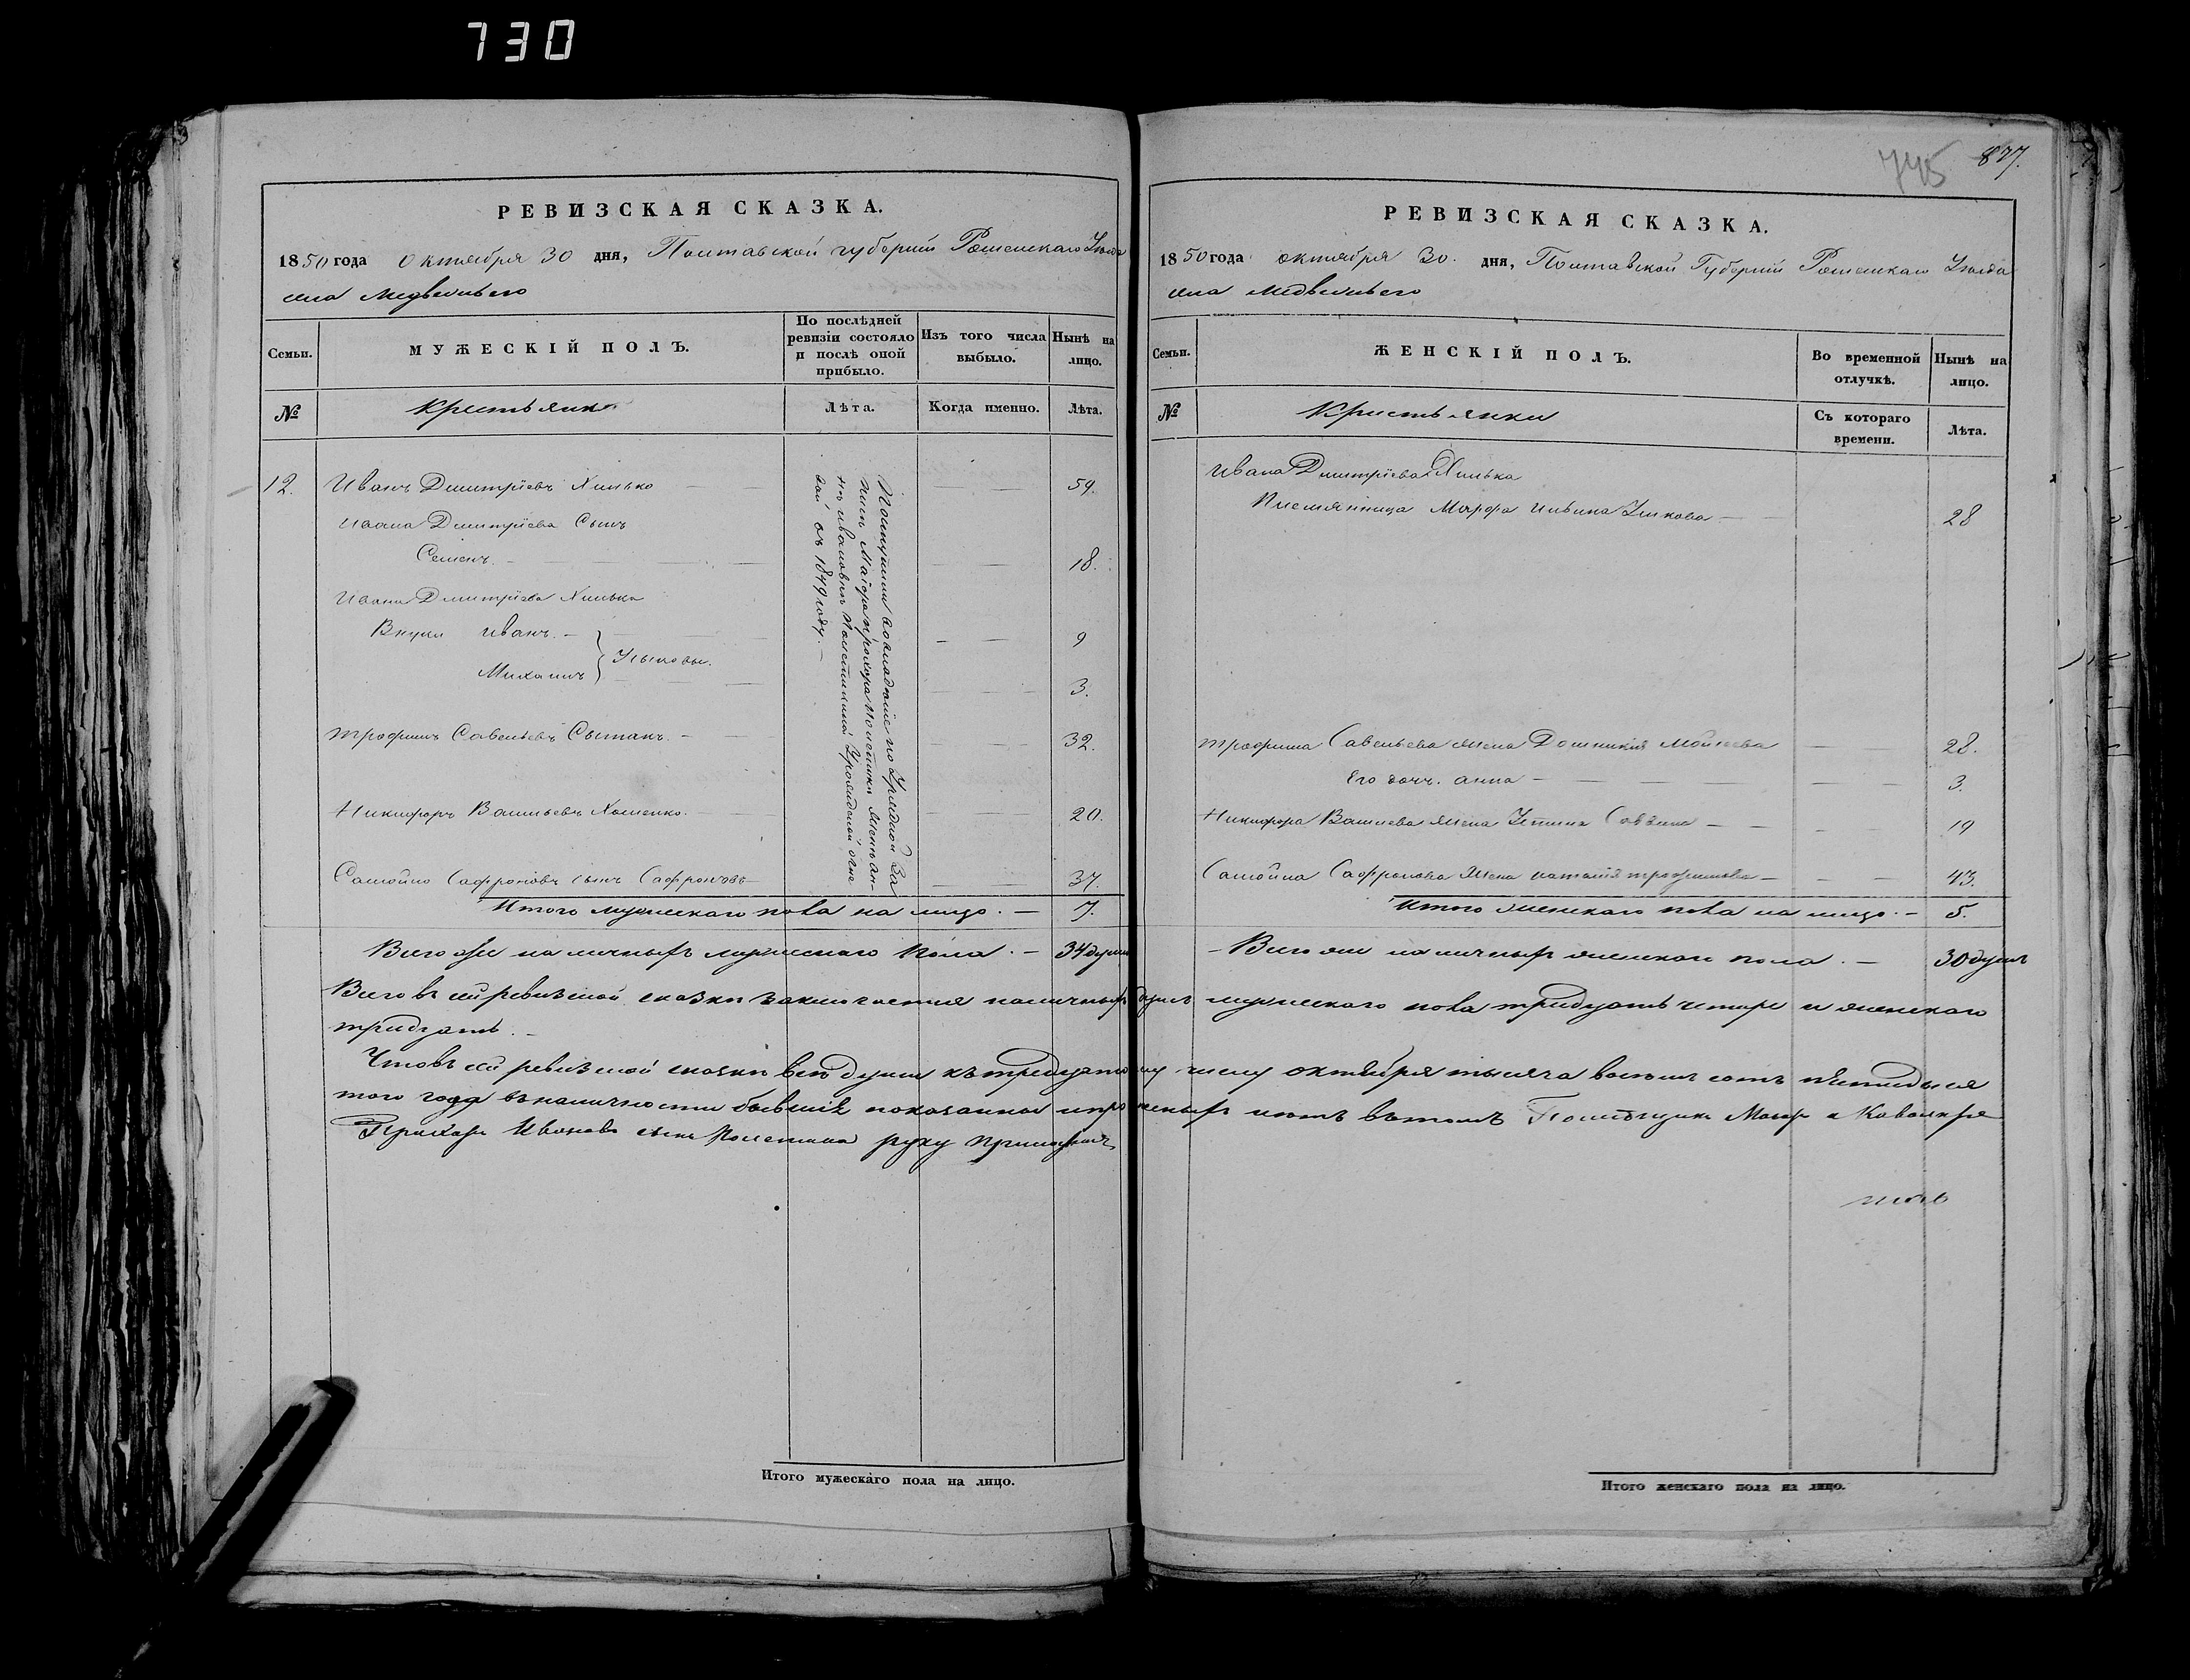 730
745 877.
РЕВИЗСКАЯ СКАЗКА.
1850 года Октября 30 дня, Полтавской губернии Роменскаго Уезда
села Медвежьего
Семьи.
МУЖЕСКІЙ ПОЛЪ.
По послѣдней ревизіи состояло и послѣ оной прибыло.
Изъ того числа выбыло.
Нынѣ на лицо.
№
Крестьяне
Лѣта.
Когда именно.
Лѣта.
12. Иванъ Дмитріевъ Хилько 59.
Ивана Дмитріева Сынъ
Семенъ. 18.
Ивана Дмитріева Хилька
Внуки Иванъ. 9
Михаилъ 3.
Трофимъ Савельевъ 32.
Никифоръ Васильевъ Хоменко. 20.
Самойло Сафроновъ сынъ Сафроновъ 37.
съ 1849 году.
Итого мужескаго пола на лицо. 7.
Всего же наличныхъ мужескаго пола. 34 душъ
РЕВИЗСКАЯ СКАЗКА.
1850 года октября 30. дня, Полтавской Губерніи Роменскаго Уезда
села Медвежьего
Семьи.
ЖЕНСКІЙ ПОЛЪ.
Во временной отлучкѣ.
Нынѣ на лицо.
№
Крестьянки
Съ котораго времени.
Лѣта.
Ивана Дмитріева Хилька
Племянница Марфа 28
Трофима Савельева жена Домникія Моисеева 28.
Его дочь. Анна 3.
Никифора Васильева жена 19
Самойла Сафронова жена Наталія Трофимова 43.
Итого женскаго пола на лицо. 5.
Всего же наличныхъ женскаго пола. 30 душъ
Всего въ сей ревизской сказки заключается наличныхъ душъ мужескаго пола тридцать четыре и женскаго
тридцать.
Что въ сей ревизской сказки все души къ тридцатому числу октября тысяча восемь сотъ пятидеся
того года въ наличности бывшія показаны и нетъ въ томъ Помещикъ Маіоръ и Кавалеръ
Прохоръ Ивановъ сынъ руку приложилъ
Итого мужескаго пола на лицо.
Итого женскаго пола на лицо.